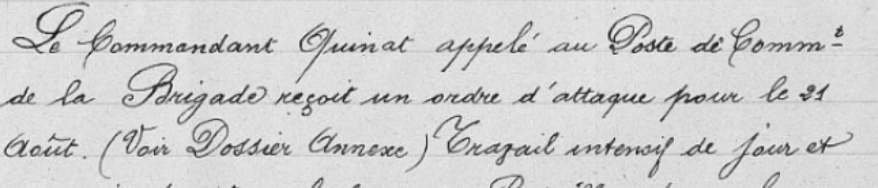 Le Commandant Quinat appelé au Poste de Comm.t
de la Brigade reçoit un ordre d'attaque pour le 21
Août. (Voir Dossier Annexe) Travail intensif de jour et